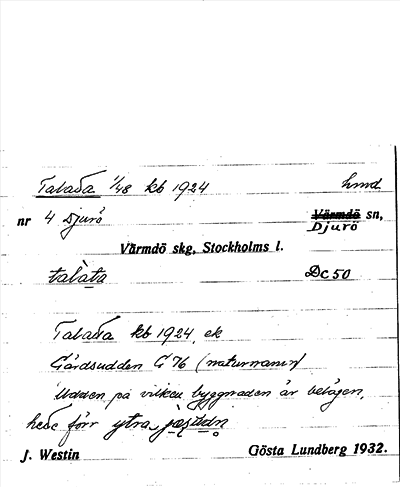 Talatta 1/48 kb 1924 hmd
nr 4 Djurö Värmdö sn,
Djurö
Värmdö skg, Stockholms l.
talàta Dc50
Talatta kb 1924, ek
Gårdsudden G 76 (naturnamn)
Udden på vilken byggnaden är belägen,
hete förr ytra
J. Westin Gösta Lundberg 1932.